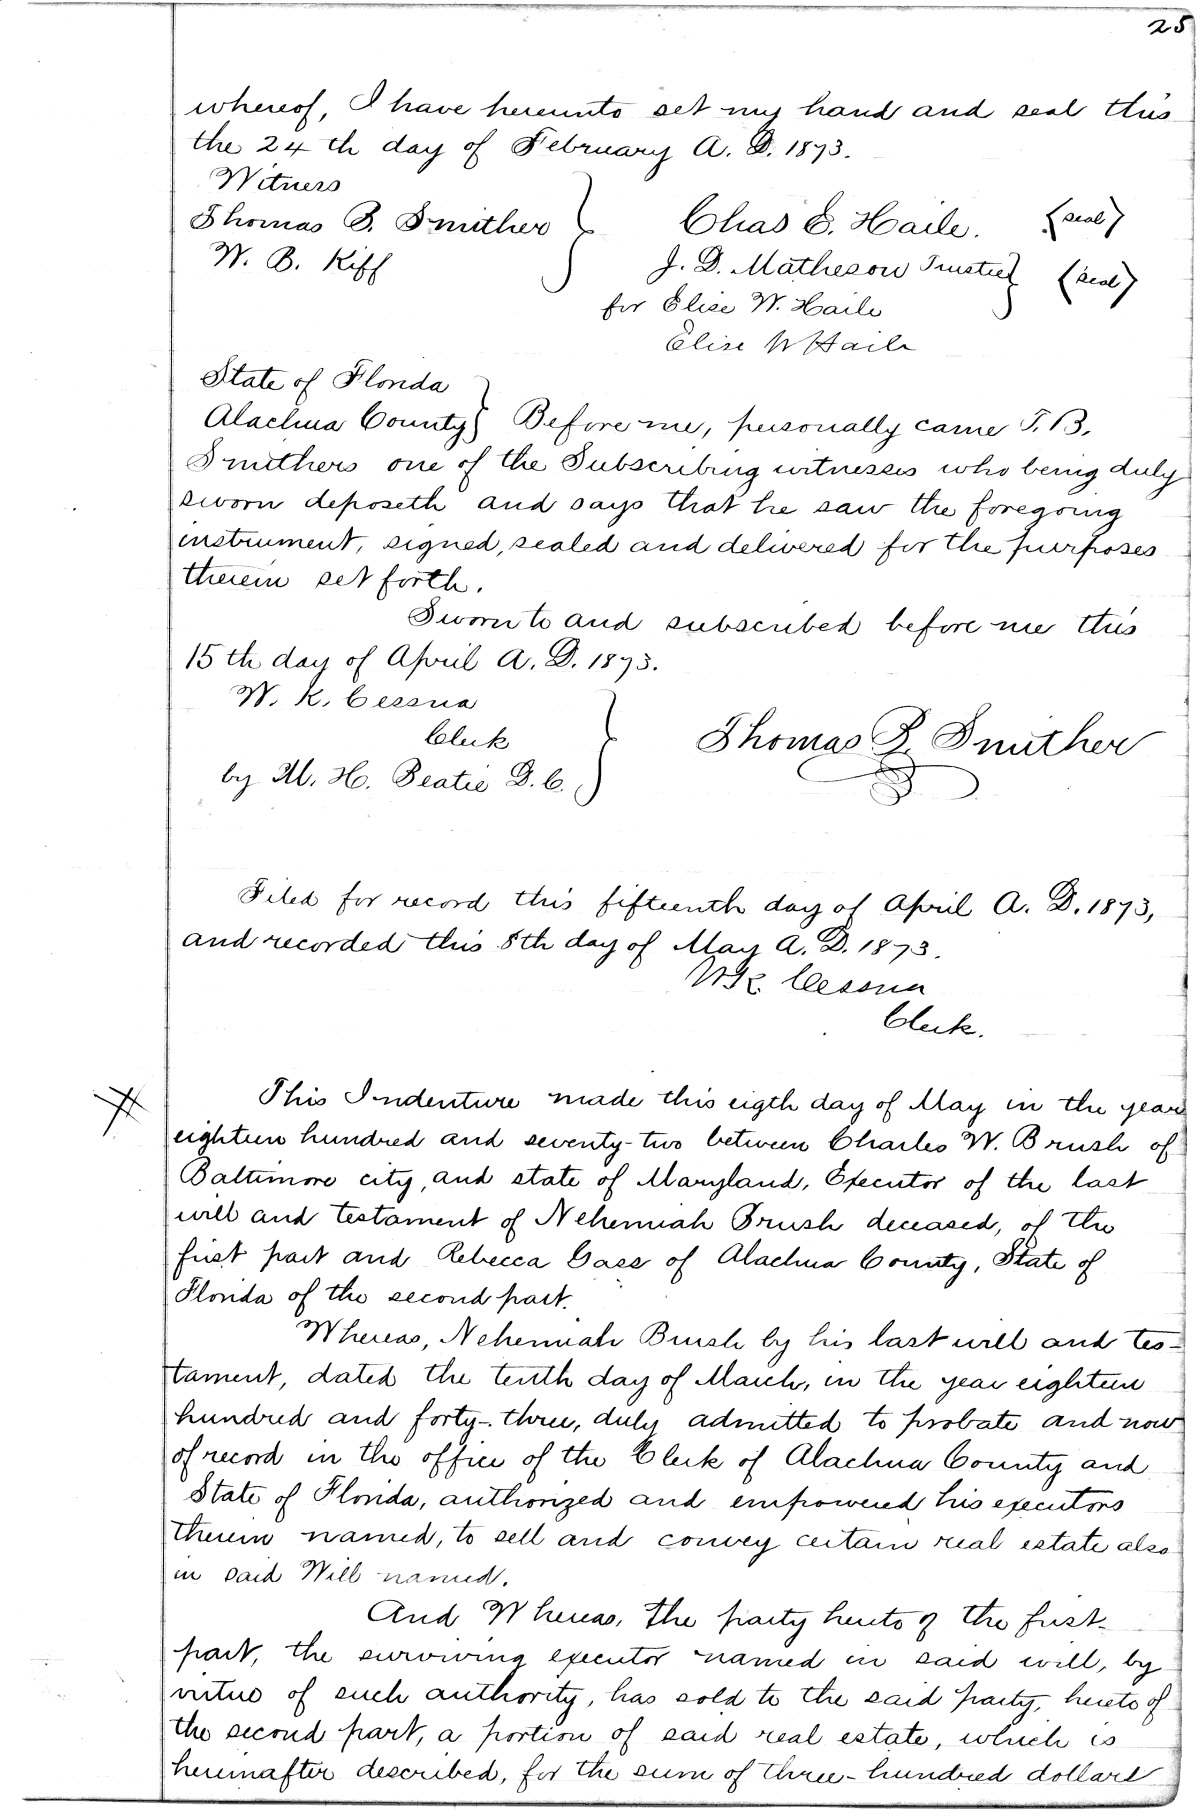 25
whereof, I have hereunto set my hand and seal this
the 24th day of February A. D. 1873.
Witness
Thomas B. Smither
W. B. Kiff
Chas E. Haile. (seal)
J. D. Matheson Trustee (seal)
for Elise W. Haile
Elise W Haile
State of Florida
Alachua County Before me, personally came T. B.
Smithers one of the Subscribing witnesses who being duly
sworn deposeth and says that he saw the foregoing
instrument, signed, sealed and delivered for the purposes
therein set forth.
Sworn to and subscribed before me this
15th day of April A. D. 1873.
W. K. Cessna
Clerk
by M. H. Beatie D. C.
Thomas B. Smither
Filed for record this fifteenth day of April A. D. 1873,
and recorded this 8th day of May A. D. 1873.
W K. Cessna
Clerk.
This Indenture made this eigth day of May in the year
eighteen hundred and seventy-two between Charles W. Brush of
Baltimore city, and state of Maryland, Executor of the last
will and testament of Nehemiah Brush deceased, of the
first part and Rebecca Gass of Alachua County, State of
Florida of the second part.
Whereas, Nehemiah Brush by his last will and tes-
tament, dated the tenth day of March, in the year eighteen
hundred and forty-three, duly admitted to probate and now
of record in the office of the Clerk of Alachua County and
State of Florida, authorized and empowered his executors
therein named, to sell and convey certain real estate also
in said Will named.
And Whereas, the party hereto of the first
part, the surviving executor named in said will, by
virtue of such authority, has sold to the said party, hereto of
the second part, a portion of said real estate, which is
hereinafter described, for the sum of three-hundred dollars